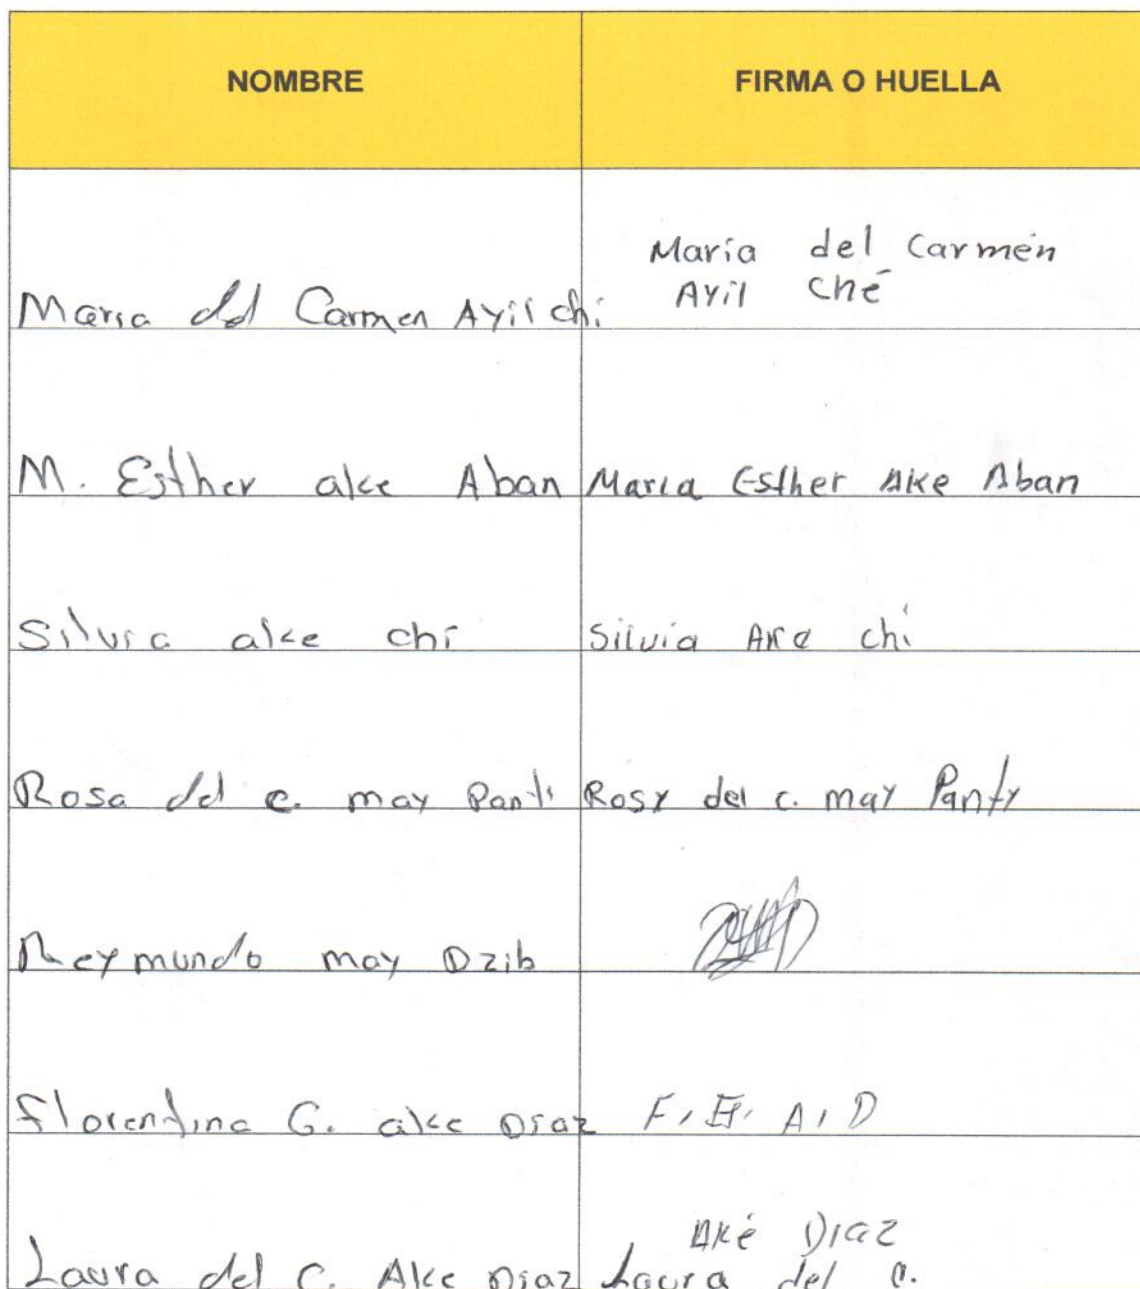 NOMBRE FIRMA O HUELLA
Maria del Carmen Ayil chi
Maria del Carmen
Ayil Ché
M. Esther ake Aban Maria Esther Ake Aban
Silvia ake chi Silvia Ake chi
Rosa del c. may Panti Rosy del c. may Panty
Reymundo may Dzib
Florentina G. ake Diaz F, A, D
Laura del C. Ake Diaz
Aké Diaz
Laura del C.